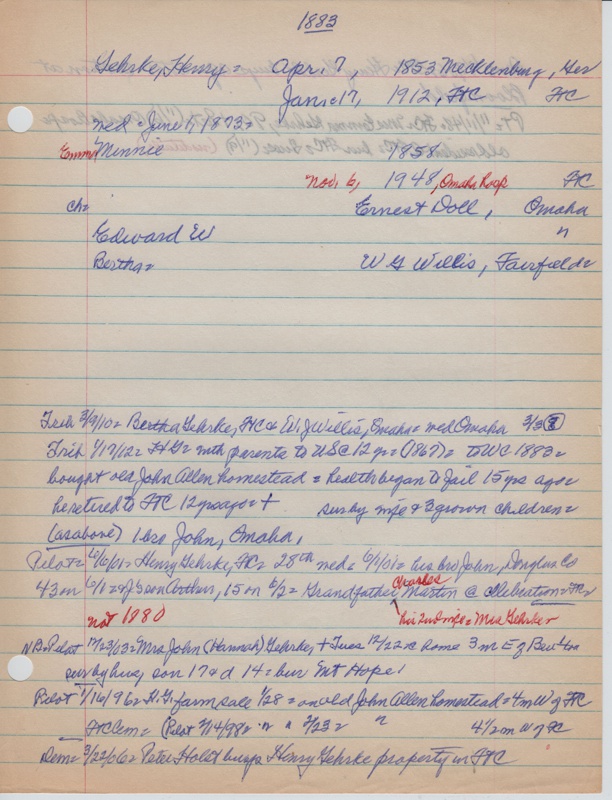 1883
Gehrke, Henry = Apr. 7, 1853 Mecklenburg, Ger
Jan. 17, 1912, FtC FtC
wed = June 1, 1873 =
Emma Minnie 1858
Nov. 6, 1948, Omaha Hosp FtC
ch = Ernest Doll, Omaha
Edward W "
Bertha = W G Willis, Fairfield =
Trib 3/9/10 = Bertha Gehrke, FtC & W. J Willis, Omaha = wed Omaha 3/3
Trib 1/17/12 = HG = with parents to US @ 12 yr = (1867) = to WC 1883 =
bought old John Allen homestead = health began to fail 15 yrs ago =
he retired to FtC 12 yrs ago = + sur by wife & 3 grown children =
(as above) 1 bro John, Omaha,
Pilot = 6/6/01 = Henry Gehrke, FtC = 28th wed = 6/1/01 = bro John, Douglas Co
43 on 6/1 = & son Arthur, 15 on 6/2 = Grandfather Charles Martin @ celebration = FtC
not 1880 his 2nd wife = Mrs Gehrke
NB = Pilot 12/23/03 = Mrs John (Hannah) Gehrke, + Tues 12/22 @ home 3 m E of
sur by hus, son 17 & d 14 = bur Mt Hope
Pilot 1/16/96 = H.G. farm sale 1/28 = on old John Allen homestead = 4 m W of FtC
FtC Cem = (Pilot 2/14/98 = " " 2/23 = " 4 1/2 m W of FC
Dem = 3/22/06 = Peter Holst buys Henry Gehrke property in FtC